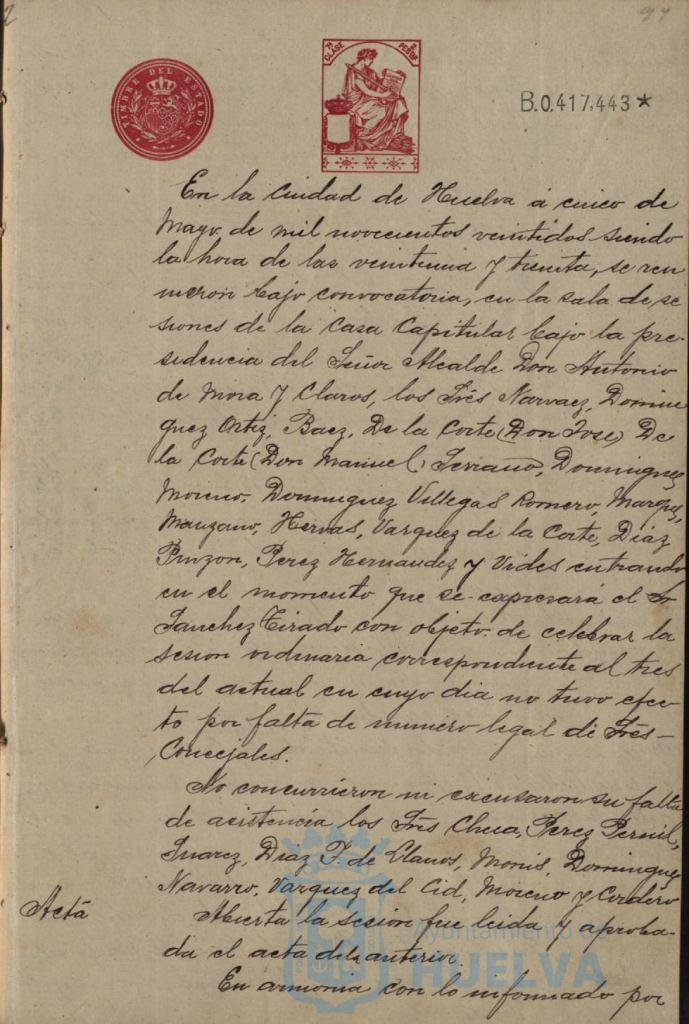 97
TIMBRE DEL ESTADO
7ª CLASE
PESETAS
B.0.417,443*
En la Ciudad de Huelva á cinco de
Mayo de mil novecientos veintidos siendo
la hora de las veintiuna y treinta, se reu
nieron bajo convocatoria, en la sala de se
siones de la Casa Capitular bajo la pre-
sidencia del Señor Alcalde Don Antonio
de Mora y Claros, los Srés Narvaez, Domin
guez Ortiz, Baez, De la Corte (Don Jose) De
la Corte (Don Manuel) Serrano, Dominguez
Moreno, Dominguez Villegas Romero, Marquez,
Manzano, Hervas, Vazquez de la Corte, Diáz
Pinzon, Perez Hernandez y Vides entrando
en el momento que se expresará el Sr
Sanchez Tirado con objeto de celebrar la
sesion ordinaria correspondiente al tres
del actual en cuyo dia no tuvo efec
to por falta de numero legal de Srés-
Concejales.
No concurrieron ni excusaron su falta
de asistencia los Srés Chua, Perez Pernil,
Suarez, Diaz F. de Llanos, Monis, Dominguez
Navarro, Vazquez del Cid, Moreno y Cordero
Acta
Abierta la sesion fue leida y aproba-
da el acta de la anterior.
En armonia con lo informado por
Ayuntamiento
HUELVA